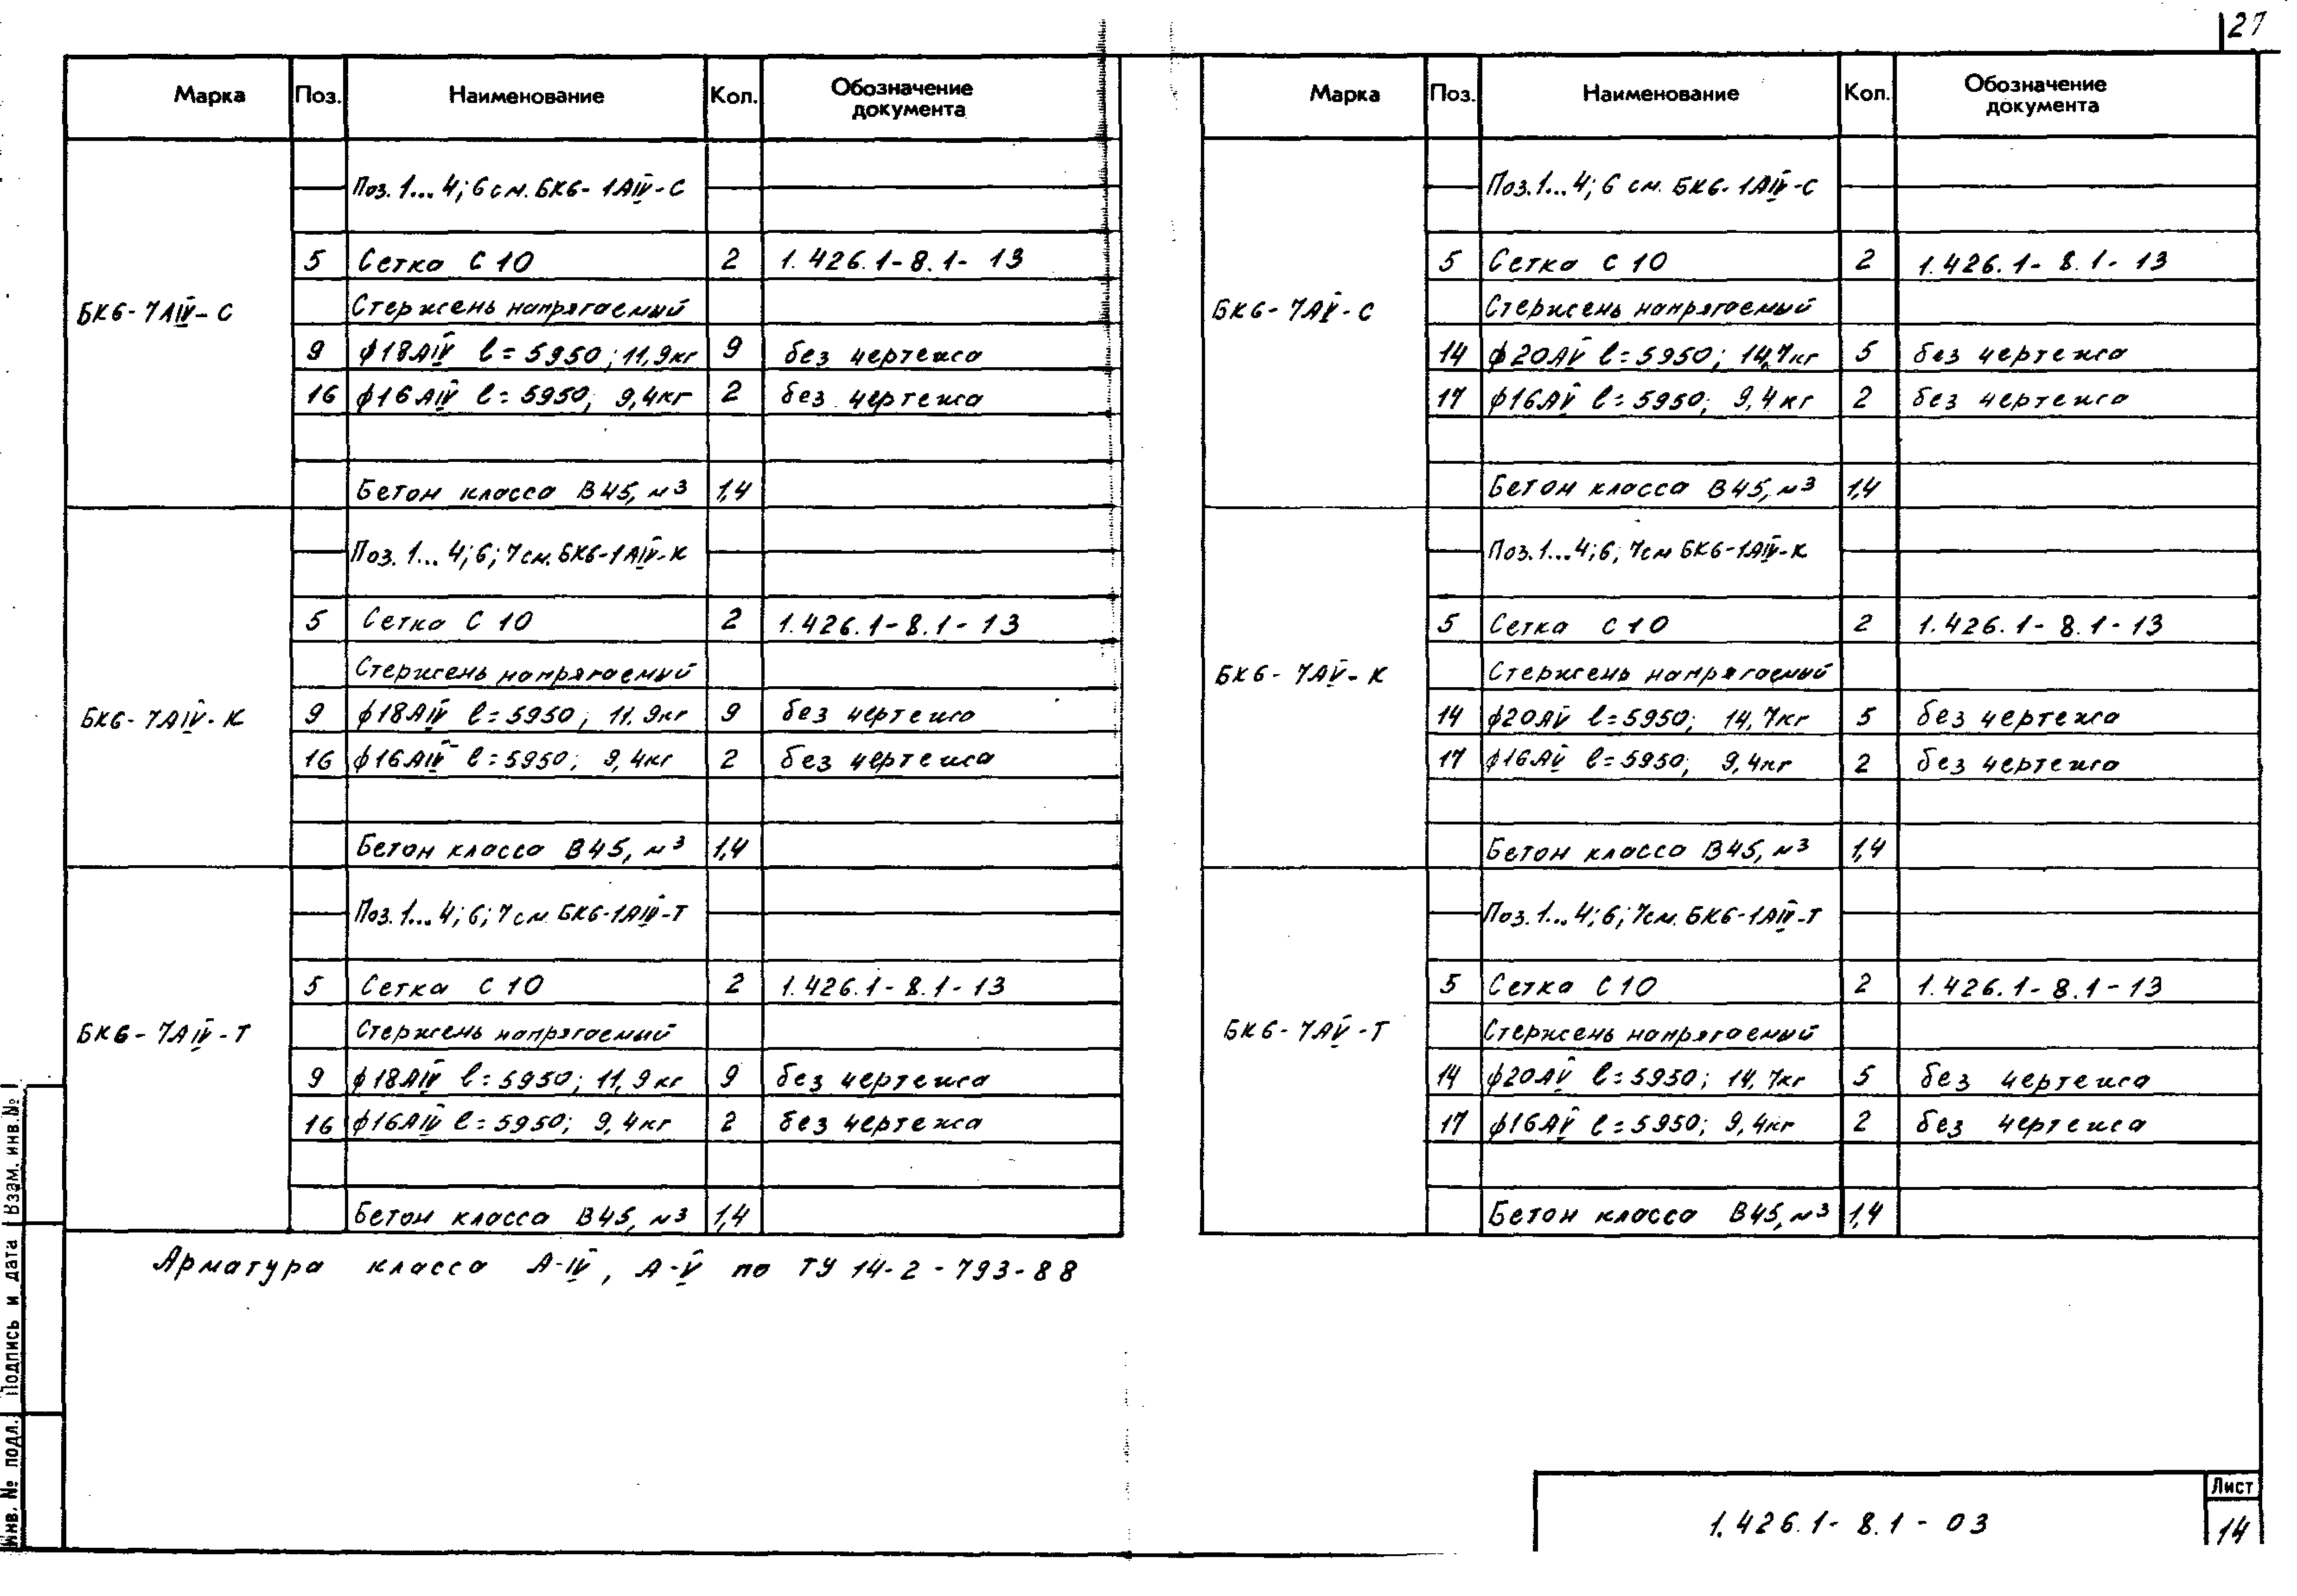 27
Марка Поз. Наименование Кол. Обозначение документа
БК6-7АIV-С
Поз. 1...4; 6 см. БК6-1АIV-С
5 Сетка С10 2 1.426.1-8.1-13
Стержень напрягаемый
9 ф18АIV l=5950; 11,9кг 9 без чертежа
16 ф16АIV l=5950; 9,4кг 2 без чертежа
Бетон класса В45, м3 1,4
БК6-7АIV-К
Поз. 1...4; 6; 7 см. БК6-1АIV-К
5 Сетка С10 2 1.426.1-8.1-13
Стержень напрягаемый
9 ф18АIV l=5950; 11.9кг 9 без чертежа
16 ф16АIV l=5950; 9,4кг 2 без чертежа
Бетон класса В45, м3 1,4
БК6-7АIV-Т
Поз. 1...4; 6; 7 см. БК6-1АIV-Т
5 Сетка С10 2 1.426.1-8.1-13
Стержень напрягаемый
9 ф18АIV l=5950; 11,9кг 9 без чертежа
16 ф16АIV l=5950; 9,4кг 2 без чертежа
Бетон класса В45, м3 1,4
Арматура класса А-IV, А-V по ТУ 14-2-793-88
Марка Поз. Наименование Кол. Обозначение документа
БК6-7АV-С
Поз. 1...4; 6 см. БК6-1АIV-С
5 Сетка С10 2 1.426.1-8.1-13
Стержень напрягаемый
14 ф20АV l=5950; 14,7кг 5 без чертежа
17 ф16АV l=5950; 9,4кг 2 без чертежа
Бетон класса В45, м3 1,4
БК6-7АV-К
Поз. 1...4; 6; 7 см БК6-1АIV-К
5 Сетка С10 2 1.426.1-8.1-13
Стержень напрягаемый
14 ф20АV l=5950; 14,7кг 5 без чертежа
17 ф16АV l=5950; 9,4кг 2 без чертежа
Бетон класса В45, м3 1,4
БК6-7АV-Т
Поз. 1...4; 6; 7 см. БК6-1АIV-Т
5 Сетка С10 2 1.426.1-8.1-13
Стержень напрягаемый
14 ф20АV l=5950; 14,7кг 5 без чертежа
17 ф16АV l=5950; 9,4кг 2 без чертежа
Бетон класса В45, м3 1,4
Инв. № подл. Подпись и дата Взам. инв. №
1.426.1-8.1-03
Лист
14